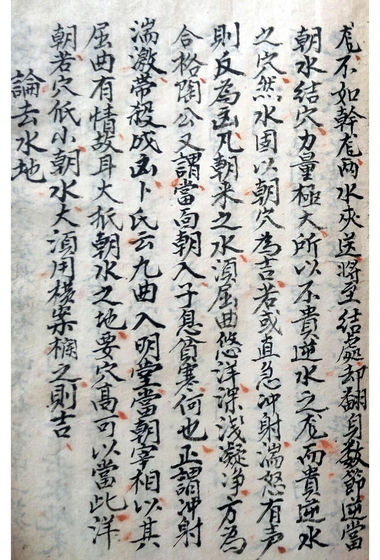 龙不如幹龙两水夾送將至結處却翻身数節逆當
朝水結穴力量極大所以不貴逆水之龙而貴逆水
之穴然水固以朝穴為吉若或直急冲射湍怒有声
則反為凶凡朝来之水須屈曲悠洋深浅凝净方為
合格陶公又謂當面朝入子息貧寒何也正謂冲射
湍激帶殺成凶卜氏云九曲入明堂當朝宰相以其
屈曲有情故耳大抵朝水之地要穴髙可以當此洋
朝若穴低小朝水大須用橫案欄之則吉
論去水地